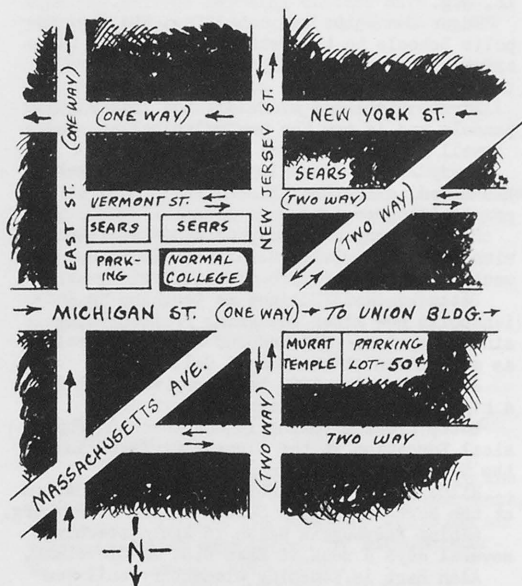 (ONE WAY)
(ONE WAY)
NEW JERSEY ST.
NEW YORK ST.
SEARS
VERMONT ST.
(TWO WAY)
(TWO WAY)
EAST ST.
SEARS
SEARS
PARK-
ING
NORMAL
COLLEGE
MICHIGAN ST. (ONE WAY) TO UNION BLDG.
MURAT
TEMPLE
PARKING
LOT-50¢
MASSACHUSETTS AVE.
(TWO WAY)
TWO WAY
-N-